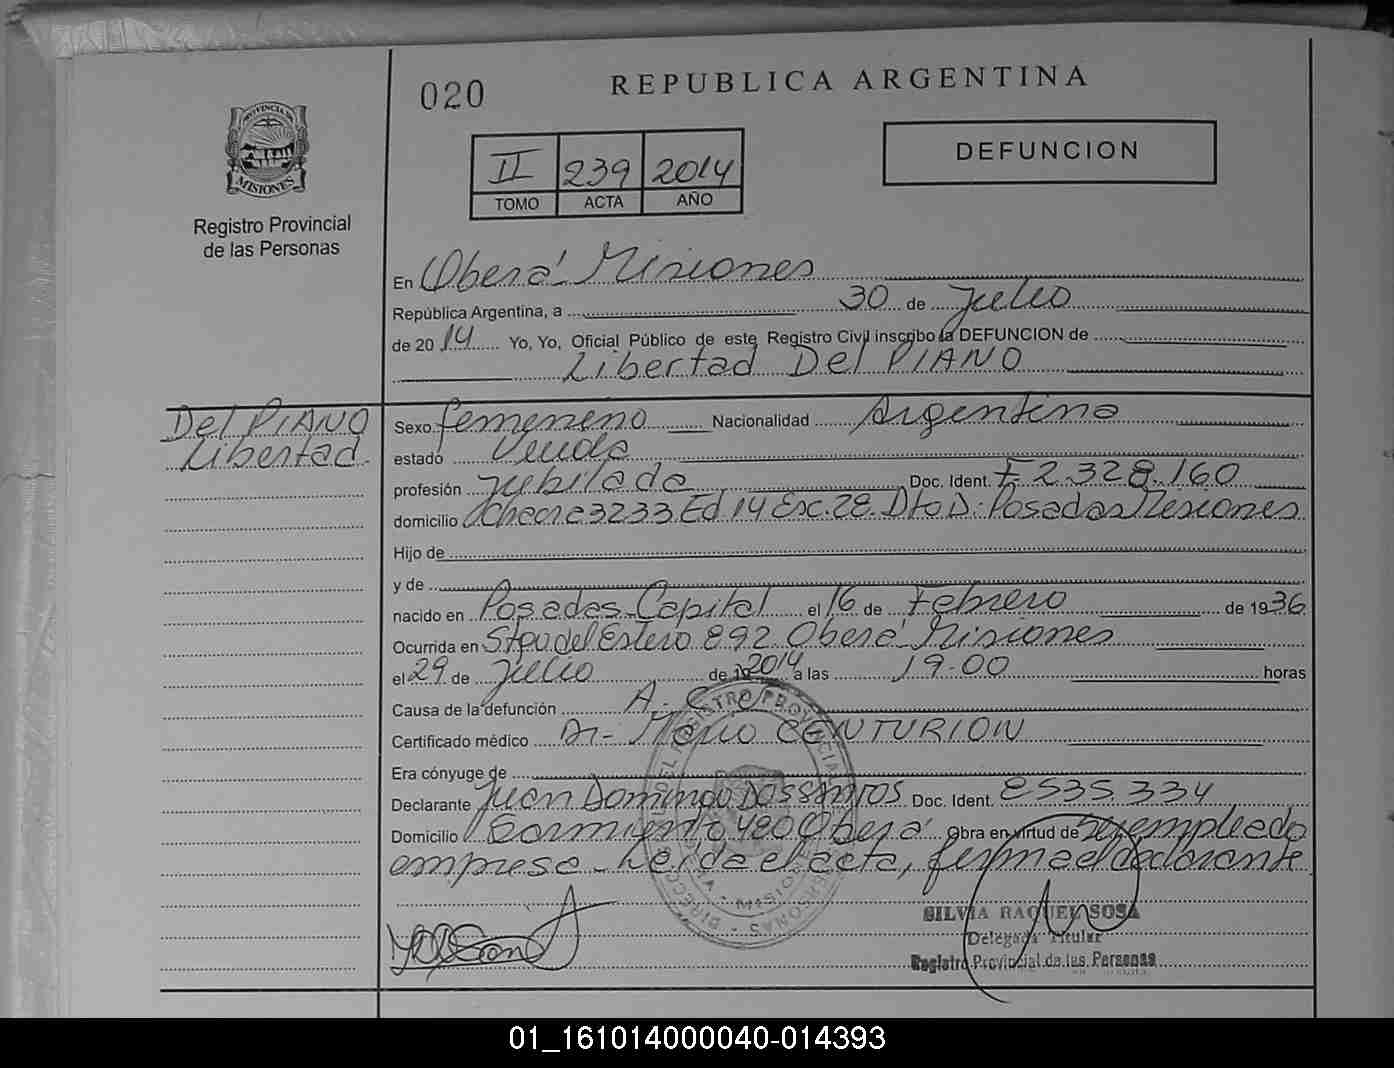 020
REPUBLICA ARGENTINA
PROVINCIA DE
MISIONES
Registro Provincial
de las Personas
II 239 2014
TOMO ACTA AÑO
DEFUNCION
En Oberá Misiones
República Argentina, a 30 de Julio
de 2014 Yo, Yo, Oficial Público de este Registro Civil inscribo la DEFUNCION de
Libertad Del PIANO
Del PIANO
Libertad
Sexo femenino Nacionalidad Argentina
estado Viuda
profesión Jubilada Doc. Ident. F 2.328.160
domicilio Chacra 3233 Ed 14 Esc. 28. Dto D: Posadas Misiones
Hijo de
y de
nacido en Posadas Capital el 16 de Febrero de 1936
Ocurrida en Stgo del Estero 892 Oberá Misiones
el 29 de Julio de 19 2014 a las 19.00 horas
Causa de la defunción A.
Certificado médico Dr. Mario CENTURION
Era cónyuge de
Declarante Juan Domingo DOSSANTOS Doc. Ident. 8535.334
Domicilio Sarmiento 480 Oberá Obra en virtud de ser empleado
empresa Leída el acta, firma el declarante
SILVIA RAQUEL SOSA
Delegada Titular
Registro Provincial de las Personas
01_161014000040-014393